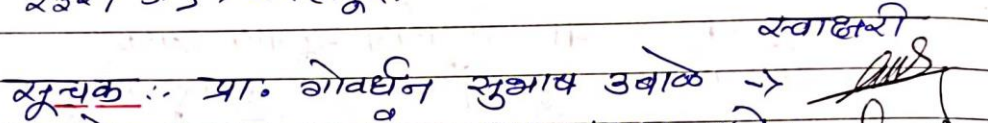 स्वाक्षरी
सूचक :- प्रा. गोवर्धन सुभाष उबाळे →